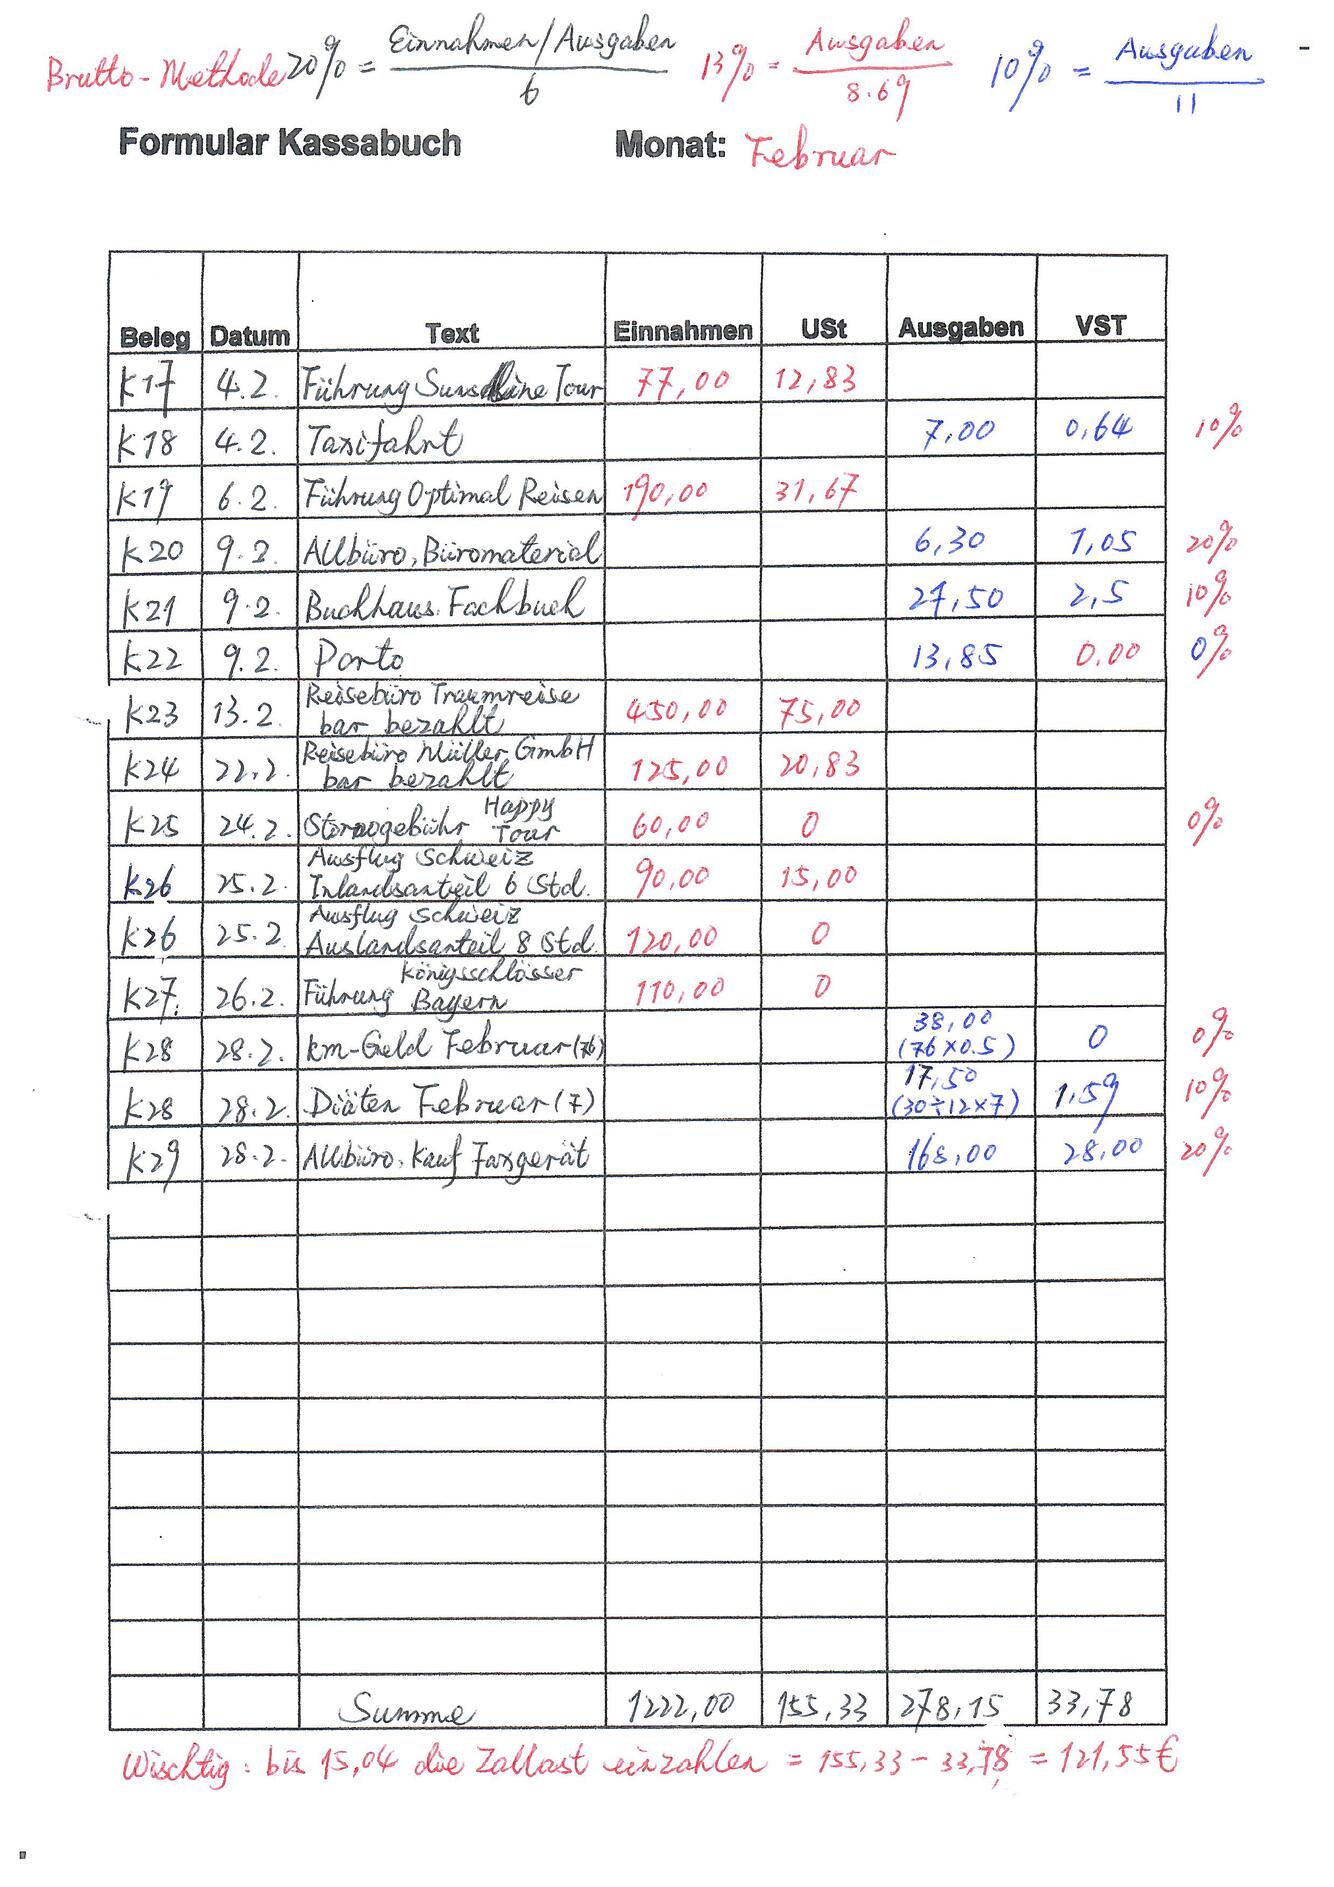 Brutto-Methode 20% = Einnahmen/Ausgaben / 6 13% = Ausgaben / 8.69 10% = Ausgaben / 11
Formular Kassabuch Monat: Februar
Beleg Datum Text Einnahmen USt Ausgaben VST
K17 4.2. Führung Sunshine Tour 77,00 12,83
K18 4.2. Taxifahrt 7,00 0,64 10%
K19 6.2. Führung Optimal Reisen 190,00 31,67
K20 9.2. Allbüro, Büromaterial 6,30 1,05 20%
K21 9.2. Buchhaus. Fachbuch 27,50 2,5 10%
K22 9.2. Porto 13,85 0.00 0%
K23 13.2. Reisebüro Traumreise
bar bezahlt 450,00 75,00
K24 22.2. Reisebüro Müller GmbH
bar bezahlt 125,00 20,83
K25 24.2. Stornogebühr Happy
Tour 60,00 0 0%
K26 25.2. Ausflug Schweiz
Inlandsanteil 6 Std. 90,00 15,00
K26 25.2. Ausflug Schweiz
Auslandsanteil 8 Std. 120,00 0
K27. 26.2. Führung Königsschlösser
Bayern 110,00 0
K28 28.2. km-Geld Februar (76) 38,00
(76×0.5) 0 0%
K28 28.2. Diäten Februar (7) 17,50
(30÷12×7) 1,59 10%
K29 28.2. Allbüro, Kauf Faxgerät 168,00 28,00 20%
Summe 1222,00 155,33 278,15 33,78
Wischtig: bis 15,04 die Zallast einzahlen = 155,33 - 33,78 = 121,55€